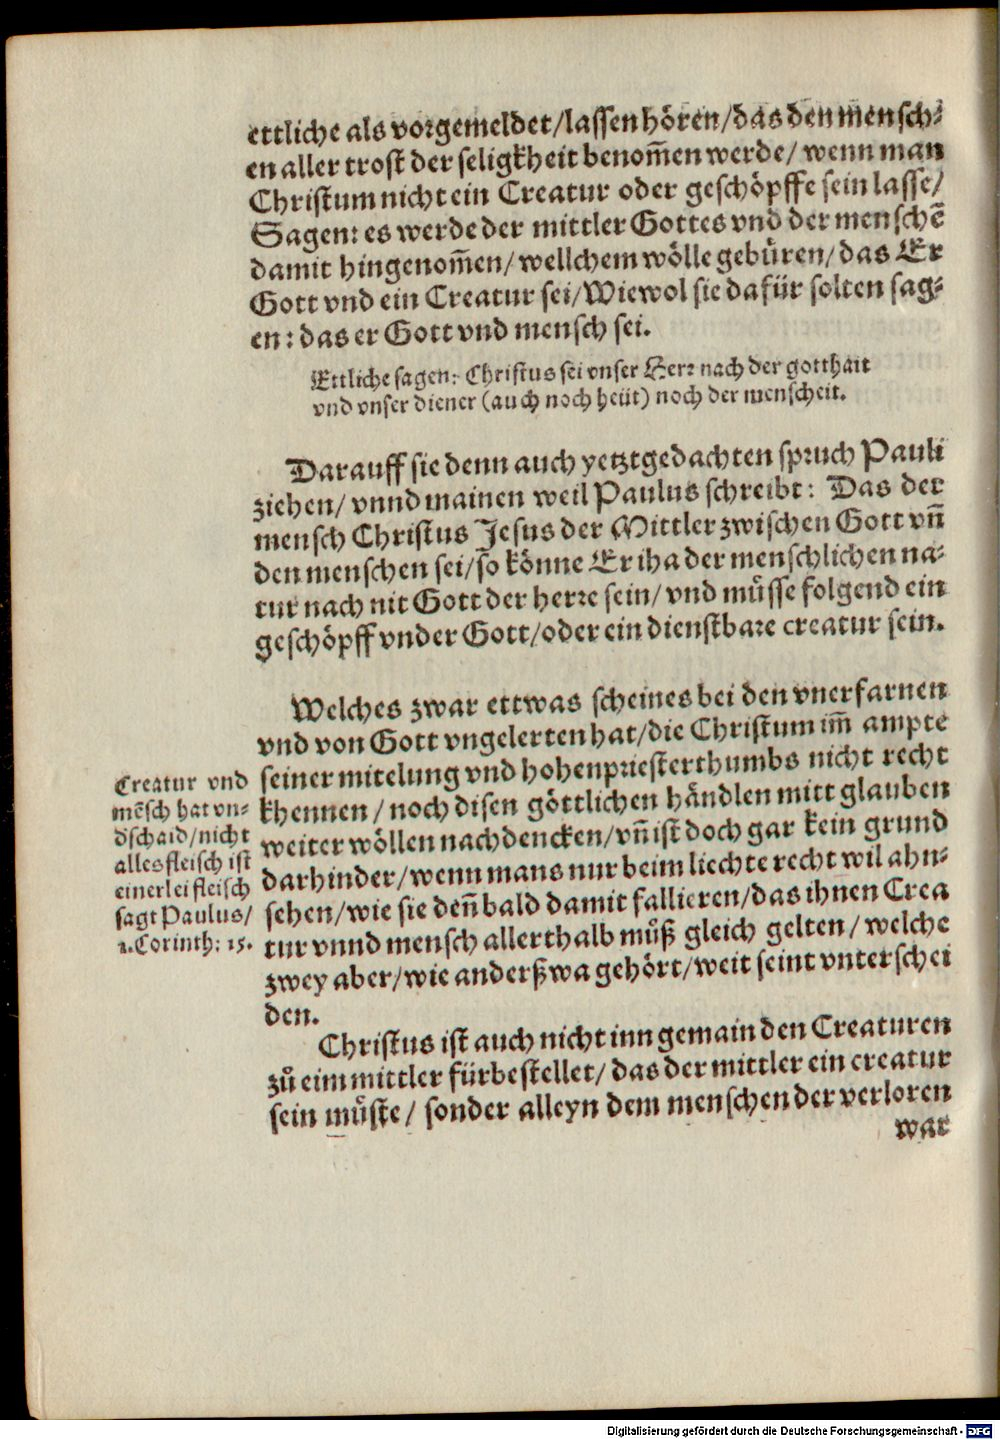 ettliche als vorgemeldet/lassen hören/das den mensch⸗
en aller trost der seligkheit benom̄en werde/ wenn man
Christum nicht ein Creatur oder geschöpffe sein lasse/
Sagen: es werde der mittler Gottes vnd der menschē
damit hingenom̄en/ wellchem wölle gebüren/ das Er
Gott vnd ein Creatur sei/ Wiewol sie dafür solten sag⸗
en: das er Gott vnd mensch sei.
Ettliche sagen: Christus sei vnser Herr nach der gotthait
vnd vnser diener (auch noch heüt) noch der menscheit.
Darauff sie denn auch yetztgedachten spruch Pauli
ziehen/ vnnd mainen weil Paulus schreibt: Das der
mensch Christus Jesus der Mittler zwischen Gott vn̄
den menschen sei/ so könne Er iha der menschlichen na⸗
tur nach nit Gott der herre sein/ vnd müsse folgend ein
geschöpff vnder Gott/oder ein dienstbare creatur sein.
Welches zwar ettwas scheines bei den vnerfarnen
vnd von Gott vngelerten hat/die Christum im̄ ampte
seiner mitelung vnd hohenpriesterthumbs nicht recht
khennen / noch disen göttlichen händlen mitt glauben
weiter wöllen nachdencken/vn̄ ist doch gar kein grund
darhinder/wenn mans nur beim liechte recht wil ahn⸗
sehen/wie sie den̄ bald damit fallieren/das ihnen Crea
tur vnnd mensch allerthalb müß gleich gelten/ welche
zwey aber/wie anderßwa gehört/weit seint vnterschei
den.
Creatur vnd
mēsch hat vn⸗
dschaid/nicht
alles fleisch ist
einerlei fleisch
sagt Paulus/
1.Corinth: 15.
Christus ist auch nicht inn gemain den Creaturen
zů eim mittler fürbestellet/ das der mittler ein creatur
sein müste/ sonder alleyn dem menschen der verloren
war
Digitalisierung gefördert durch die Deutsche Forschungsgemeinschaft - DFG